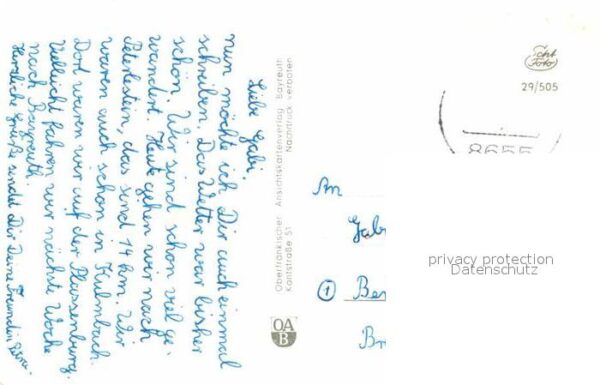 Liebe Gabi,
nun möchte ich Dir auch einmal
schreiben. Das Wetter war bisher
schön. Wir sind schon viel ge-
wandert. Heute gehen wir nach
Peterlestein, das sind 14 km. Wir
waren auch schon in Kulmbach.
Dort waren wir auf der Plassenburg.
Vielleicht fahren wir nächste Woche
nach Bayreuth.
Herzliche Grüße sendet Dir Deine Freundin Petra.
Oberfränkischer Ansichtskartenverlag Bayreuth
Kantstraße 51 Nachdruck verboten
OA
B
Echt
Foto
29/505
8655
An
Gab
1 Ber
Br
privacy protection
Datenschutz